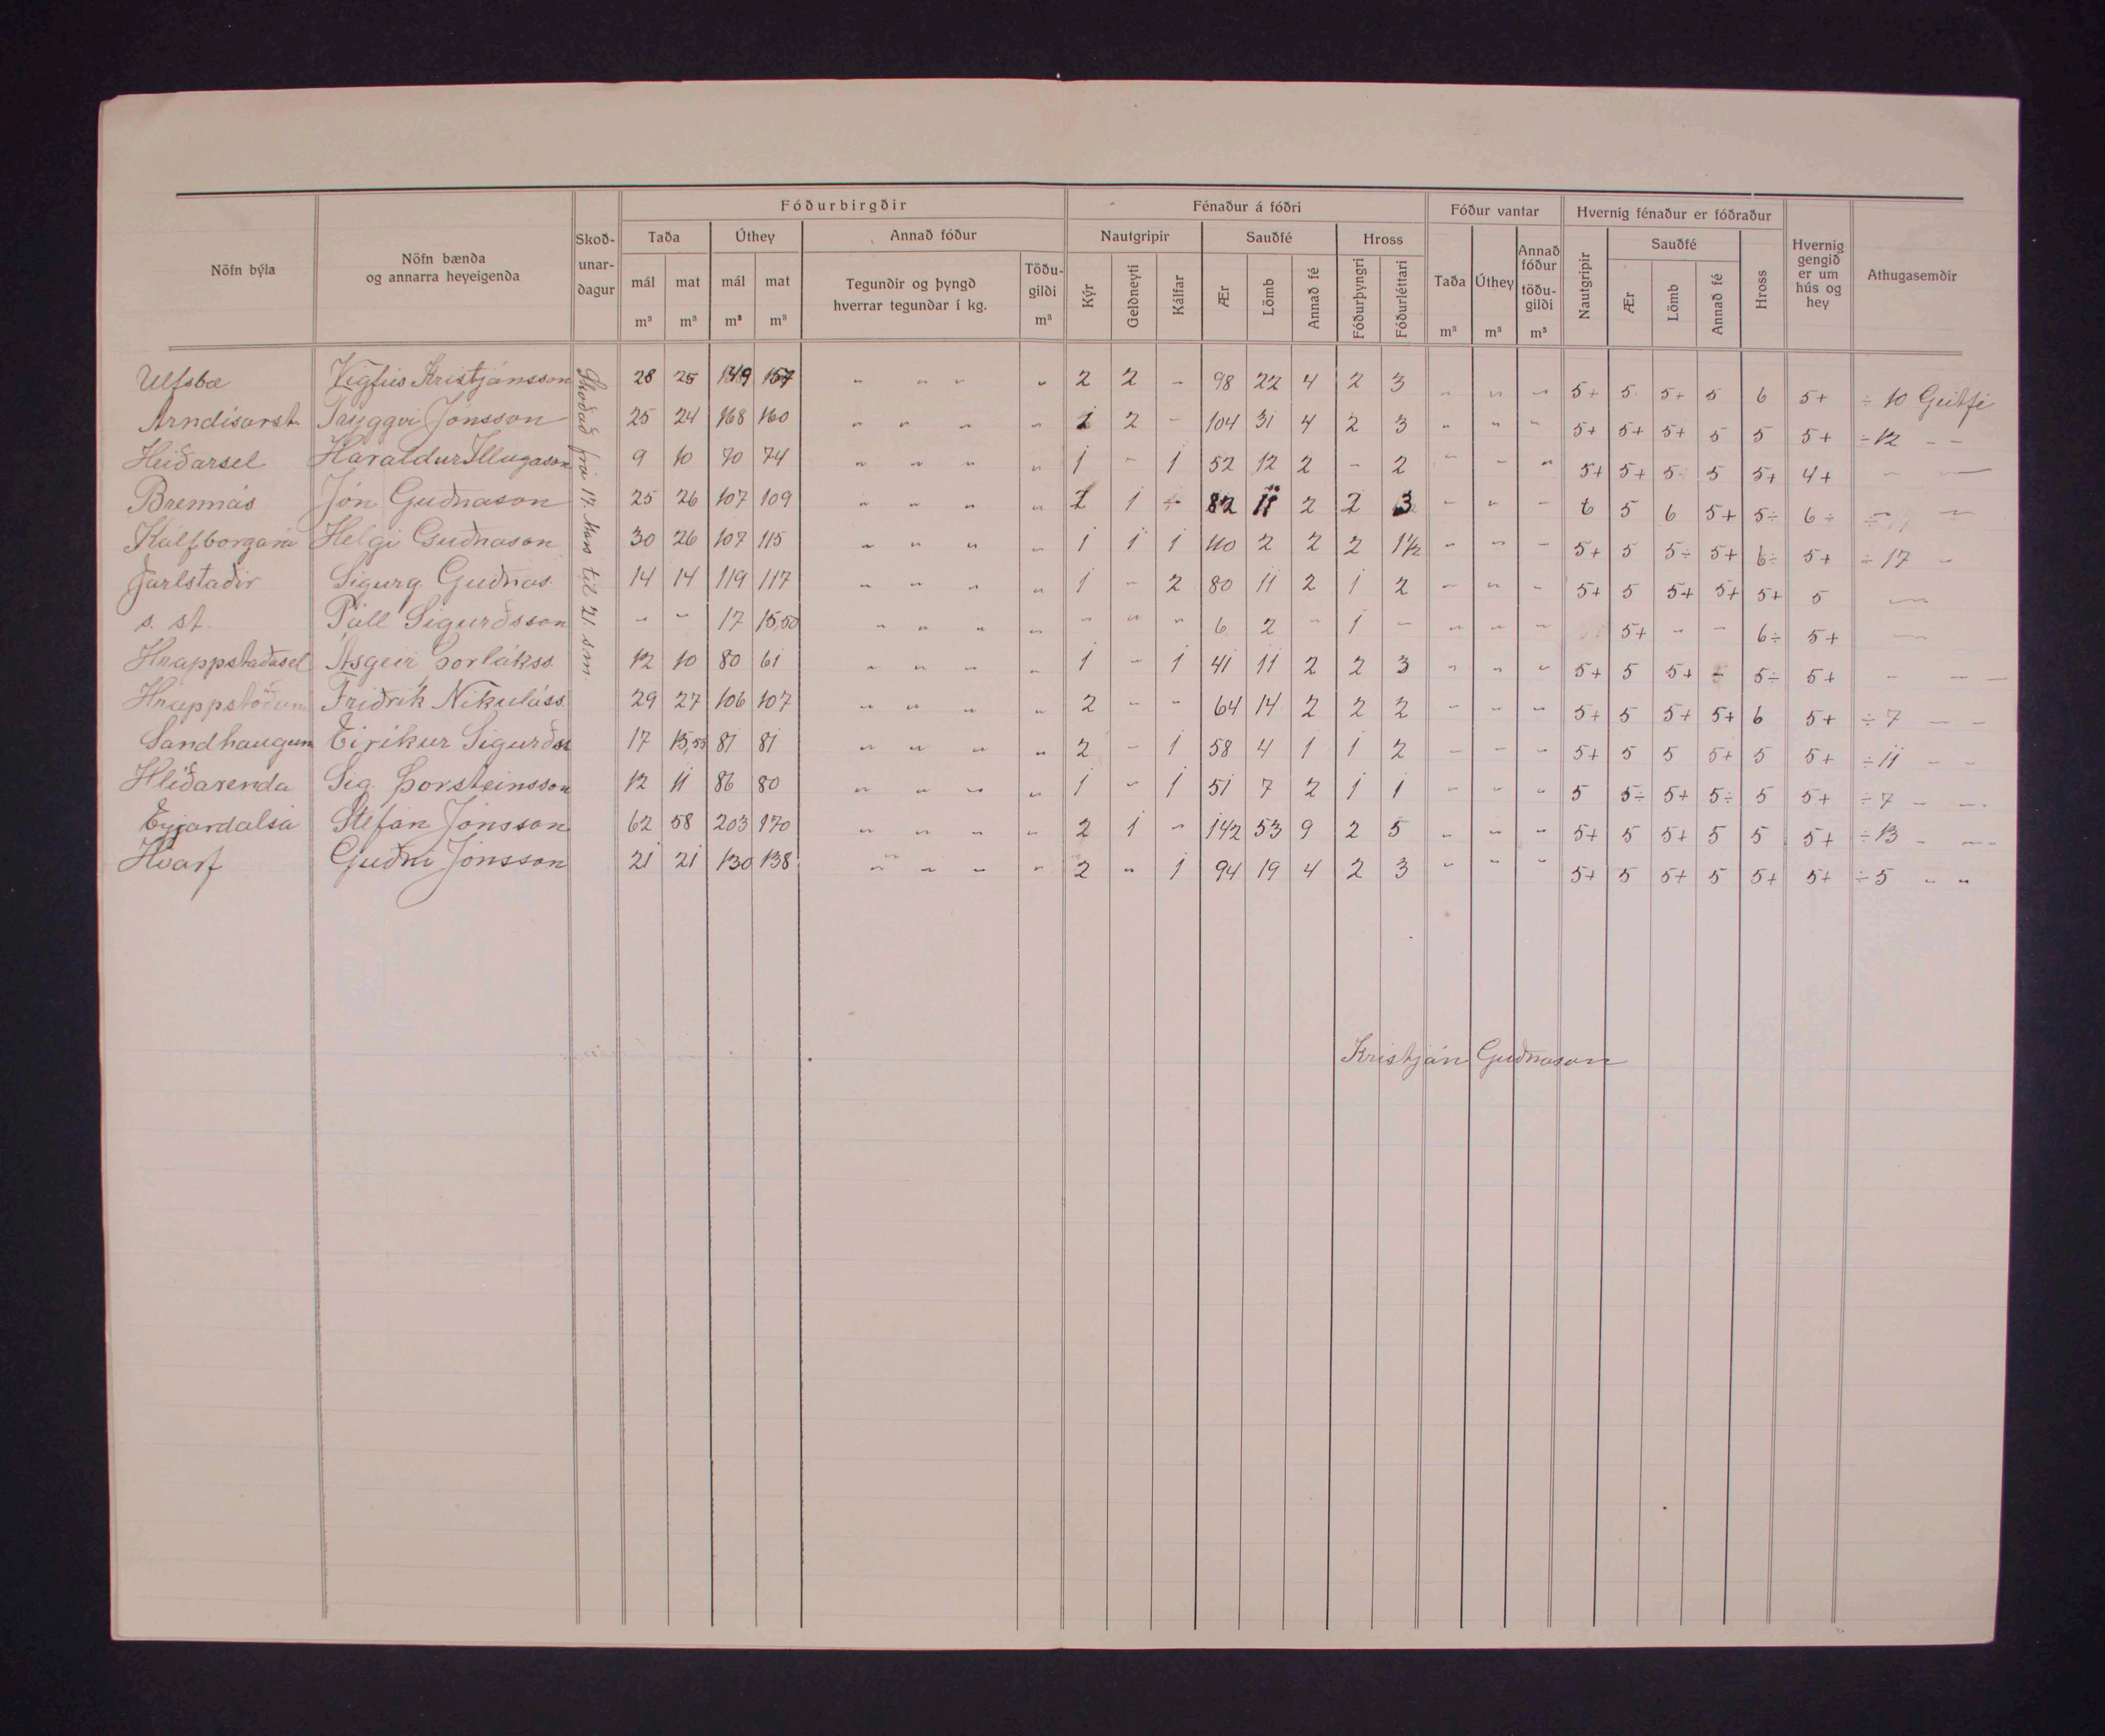 Fóðurbirgðir Fénaður á fóðri Fóður vantar Hvernig fénaður er fóðraður
Nöfn býla Nöfn bænda og annarra heyeigenda Skoðunardagur Taða Úthey Annað fóður Nautgripir Sauðfé Hross Taða Úthey Annað fóður töðugildi Nautgripir Sauðfé Hross Hvernig gengið er um hús og hey Athugasemdir
mál mat mál mat Tegundir og þyngd hverrar tegundar í kg. Töðugildi Kýr Geldneyti Kálfar Ær Lömb Annað fé Fóðurþyngri Fóðurléttari Ær Lömb Annað fé
m³ m³ m³ m³ m³ m³ m³ m³
Skoðað frá 17. Mars til 21. s.m.
Ulfsbæ Vigfús Kristjánsson 28 25 149 157 " " " " 2 2 - 98 22 4 2 3 " " " 5+ 5 5+ 5 6 5+ ÷ 10 Geitfé
Arndísarst. Tryggvi Jónsson 25 24 168 160 " " " " 2 2 - 104 31 4 2 3 " " " 5+ 5+ 5+ 5 5 5+ ÷12 - -
Heiðarsel Haraldur Illugason 9 10 70 74 " " " " 1 - 1 52 12 2 - 2 " - " 5+ 5+ 5 5 5+ 4+ - -
Brennás Jón Guðnason 25 26 107 109 " " " " 2 1 ÷ 82 11 2 2 3 - " - 6 5 6 5+ 5÷ 6÷ -
Kálfborgará Helgi Guðnason 30 26 107 115 " " " " 1 1 1 110 2 2 2 1½ - " - 5+ 5 5÷ 5+ 6÷ 5+ ÷ 17 -
Jarlstaðir Sigurg. Guðnas. 14 14 119 117 " " " " 1 - 2 80 11 2 1 2 - " - 5+ 5 5+ 5+ 5+ 5 -
s. st. Páll Sigurðsson - - 17 15,50 " " " " " " " 6 2 - 1 - " " " 5+ - - 6÷ 5+ -
Hrappstaðasel Ásgeir Þorlákss. 12 10 80 61 " " " " 1 - 1 41 11 2 2 3 " " " 5+ 5 5+ - 5÷ 5+ - - -
Hrappstöðum Friðrik Nikuláss. 29 27 106 107 " " " " 2 - - 64 14 2 2 2 - " " 5+ 5 5+ 5+ 6 5+ ÷ 7 - -
Sandhaugum Eiríkur Sigurðss 17 15,55 81 81 " " " " 2 - 1 58 4 1 1 2 - - - 5+ 5 5 5+ 5 5+ ÷ 11 - -
Hlíðarenda Sig. Þorsteinsson 12 11 86 80 " " " " 1 - 1 51 7 2 1 1 " " " 5 5÷ 5+ 5÷ 5 5+ ÷ 7 - -
Eyjardalsá Stefán Jónsson 62 58 203 170 " " " " 2 1 - 142 53 9 2 5 " " " 5+ 5 5+ 5 5 5+ ÷ 13 - -
Hvarf Guðni Jónsson 21 21 130 138 " " " " 2 " 1 94 19 4 2 3 " " " 5+ 5 5+ 5 5+ 5+ ÷ 5 " "
Kristján Guðnason